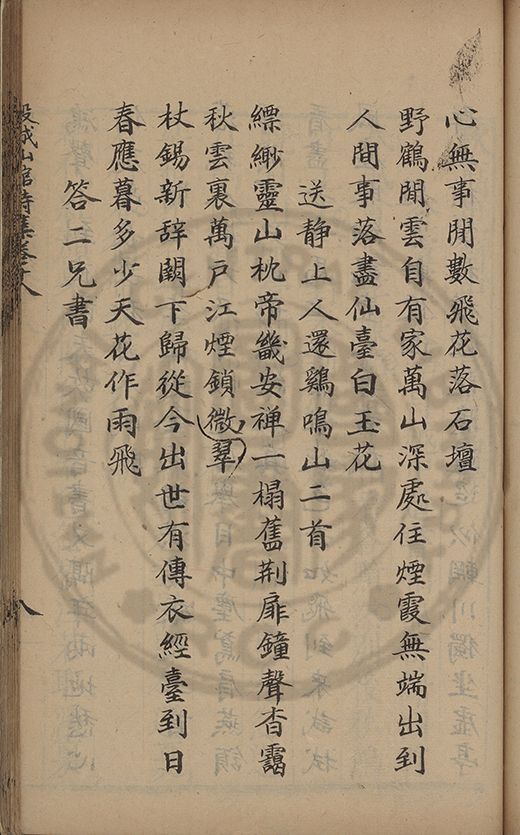 心無事閒數飛花落石壇
野鶴閒雲自有家萬山深處住煙霞無端出到
人間事落盡仙臺白玉花
送靜上人還鷄鳴山二首
縹緲靈山枕帝畿安禪一榻舊荆扉鐘聲杳靄
秋雲裏萬戶江煙鎖微翠
杖錫新辭闕下歸從今出世有傳衣經臺到日
春應暮多少天花作雨飛
答二兄書
八